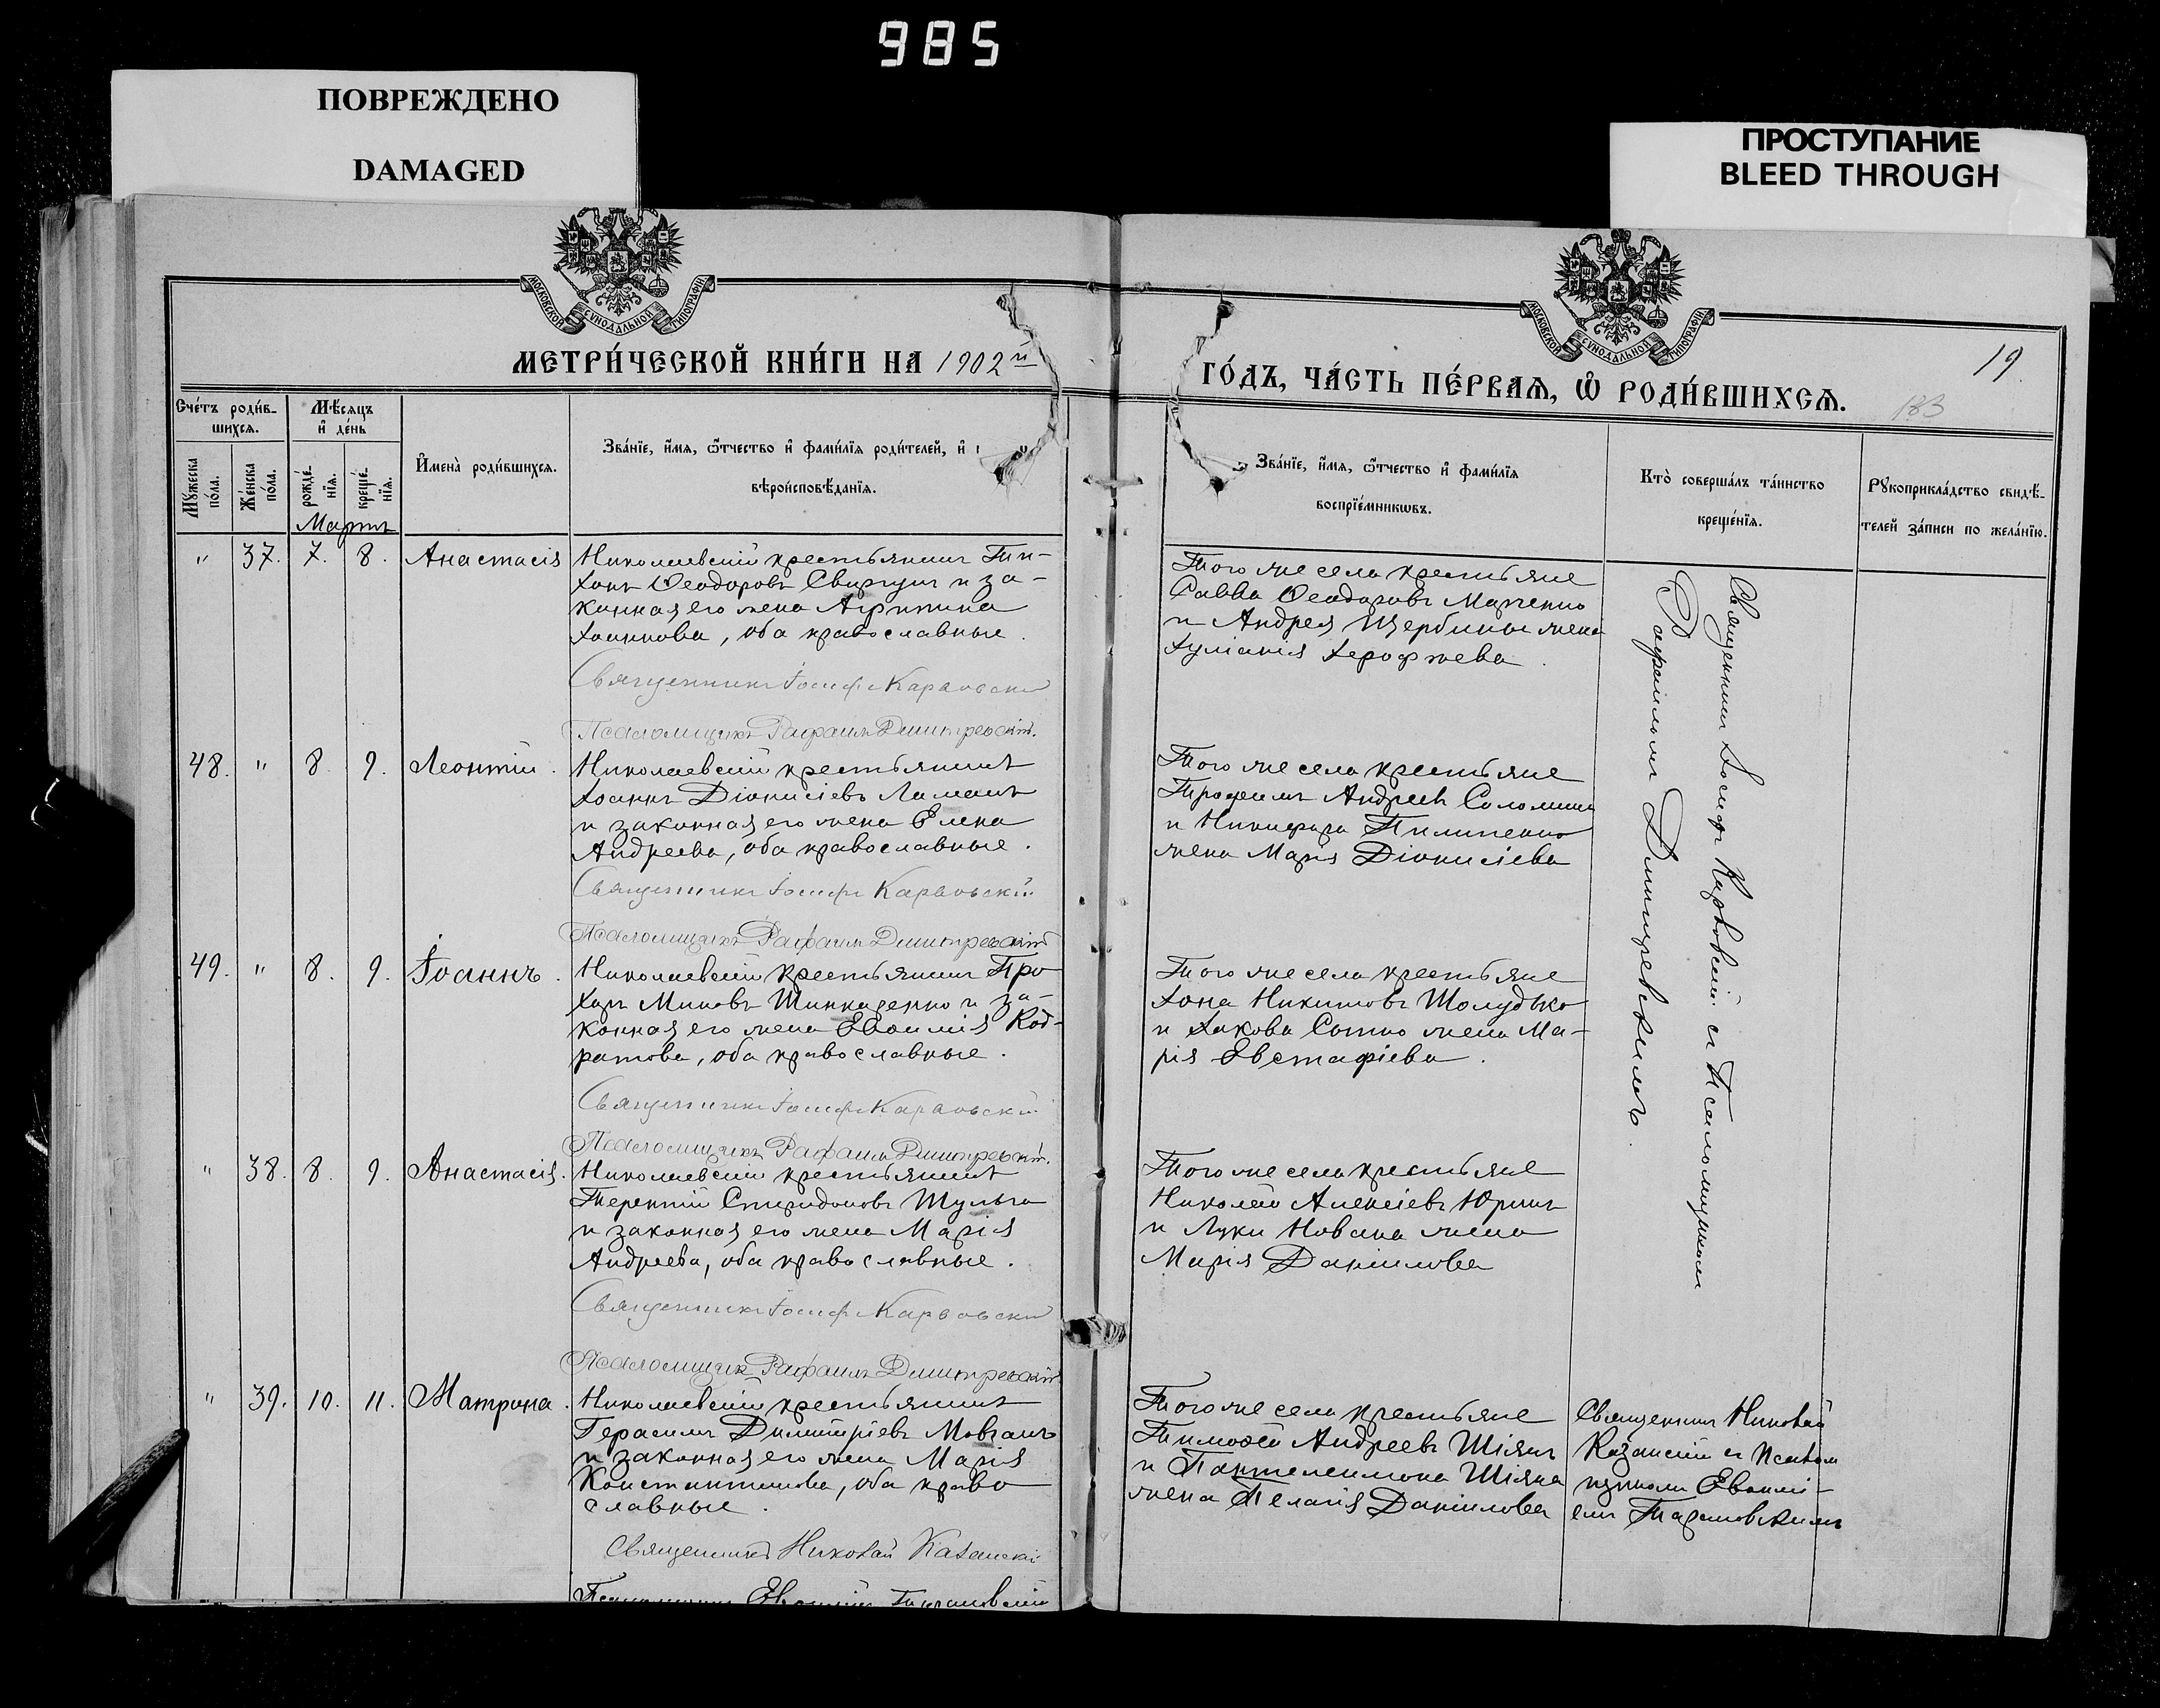 985
ПОВРЕЖДЕНО
DAMAGED
ПРОСТУПАНИЕ
BLEED THROUGH
МОСКОВСКОЙ СѴНОДАЛЬНОЙ ТИПОГРАФІИ
МОСКОВСКОЙ СѴНОДАЛЬНОЙ ТИПОГРАФІИ
МЕТРИ́ЧЕСКОЙ КНИ́ГИ НА 1902й
ГО́ДЪ, ЧА́СТЬ ПЕ́РВАЯ, Ѡ҆ РОДИ́ВШИХСЯ.
19.
183
Сче́тъ роди́в-
шихся.
Мѣ́сяцъ
и҆ де́нь
Мꙋ́жеска
по́ла.
Же́нска
по́ла.
рожде́-
нїя.
креще́-
нїя.
И҆мена̀ роди́вшихся.
Зва́нїе, и҆́мя, ѻ҆́тчество и҆ фами́лїя роди́телей, и҆
вѣроисповѣ́данїя.
Зва́нїе, и҆́мя, ѻ҆́тчество и҆ фами́лїя
воспрїе́мникѡвъ.
Кто̀ соверша́лъ та́инство
креще́нїя.
Рꙋкоприкла́дство свидѣ́-
телей за́писи по жела́нїю.
Мартъ
" 37. 7. 8. Анастасія
Николаевскій крестьянинъ Ти-
хонъ Ѳеодоровъ Свиргунъ и за-
конная его жена Агрипина
Іоаннова, оба православные.
Священникъ Іосифъ Карвовскій
Псаломщикъ Рафаилъ Димитревскій.
Того же села крестьяне
Савва Ѳеодоровъ Марченко
и Андрея Щербины жена
Іуліанія Іерофѣева.
48. " 8. 9. Леонтій.
Николаевскій крестьянинъ
Іоаннъ Діонисіевъ Ламанъ
и законная его жена Елена
Андреева, оба православные.
Священникъ Іосифъ Карвовскій
Псаломщикъ Рафаилъ Димитревскій
Того же села крестьяне
Трофимъ Андреевъ
и Никифора Пилипенко
жена Марія Діонисіева
49. " 8. 9. Іоаннъ.
Николаевскій крестьянинъ Про
хоръ Миновъ Шинкаренко и за-
конная его жена Евѳимія Код-
ратова, оба православные.
Священникъ Іосифъ Карвовскій
Псаломщикъ Рафаилъ Димитревскій.
Того же села крестьяне
Іона Никитовъ Шолудько
и Іакова Сотко жена Ма-
рія Евстафіева.
" 38. 8. 9. Анастасія.
Николаевскій крестьянинъ
Терентій Спиридоновъ Шульга
и законная его жена Марія
Андреева, оба православные.
Священникъ Іосифъ Карвовскій
Псаломщикъ Рафаилъ Димитревскій
Того же села крестьяне
Николай Алексіевъ Юринъ
и Луки Нована жена
Марія Даніилова
Священникъ Іосифъ Карвовскій съ Псаломщикомъ
Рафаиломъ Димитревскимъ.
" 39. 10. 11. Матрона.
Николаевскій крестьянинъ
Герасимъ Димитріевъ Мовчанъ
и законная его жена Марія
Константинова, оба право
славные.
Священникъ Николай Казанскій
Псаломщикъ Евѳимій Тарановскій
Того же села крестьяне
Тимоѳей Андреевъ Шіянъ
и Пантелеимона Шіяна
жена Пелагія Даніилова
Священникъ Николай
Казанскій съ Псалом
щикомъ Евѳимі-
емъ Тарановскимъ